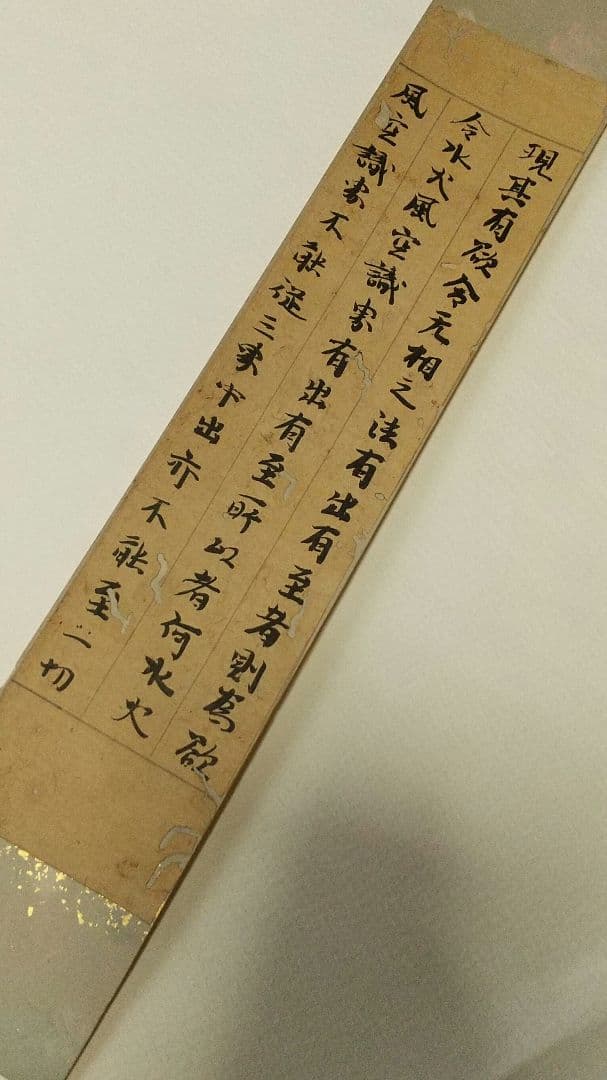 現其有欲令无相之法有出有至者則為欲
令水火風空識界有出有至所以者何水火
風空識界不能從三界中出亦不能至一切